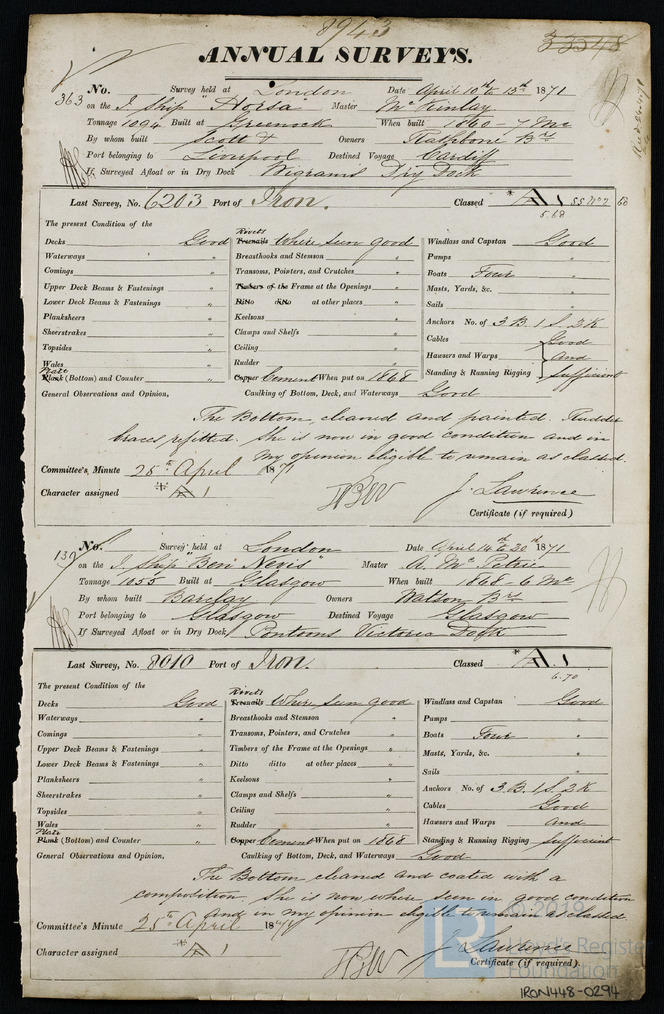 8943
33548
ANNUAL SURVEYS.
363 No. Survey held at London Date April 10th to 13th 1871
on the I. Ship "Horsa" Master Mc Kinlay
Tonnage 1094 Built at Greenock When built 1860-7 Mo
By whom built Scott & Owners Rathbone Brs
Port belonging to Liverpool Destined Voyage Cardiff
If Surveyed Afloat or in Dry Dock Wigrams Dry Dock
Last Survey, No. 6203 Port of Iron. Classed * A 1 SS No 2 68
5.68
The present Condition of the
Decks Good
Waterways "
Comings "
Upper Deck Beams & Fastenings "
Lower Deck Beams & Fastenings "
Planksheers "
Sheerstrakes "
Topsides "
Wales "
Plate
Plank (Bottom) and Counter "
Rivets
Treenails Where seen good
Breasthooks and Stemson "
Transoms, Pointers, and Crutches "
Timbers of the Frame at the Openings "
Ditto ditto at other places "
Keelsons "
Clamps and Shelfs "
Ceiling "
Rudder "
Copper Cement When put on 1868
Windlass and Capstan Good
Pumps "
Boats Four "
Masts, Yards, &c. "
Sails "
Anchors No. of 3 B. 1 S. 2 K
Cables Good
Hawsers and Warps and
Standing & Running Rigging Sufficient
General Observations and Opinion, Caulking of Bottom, Deck, and Waterways Good
The Bottom cleaned and painted. Rudder
braces refitted. She is now in good condition and in
my opinion eligible to remain as classed.
Committee's Minute 25th April 1871
Character assigned * A 1
J. Lawrence
Certificate (if required)
139 No. Survey held at London Date April 14th to 20th 1871
on the I. Ship "Ben Nevis" Master A. Mc Petrie
Tonnage 1055 Built at Glasgow When built 1868-6 Mo
By whom built Barclay Owners Watson Brs
Port belonging to Glasgow Destined Voyage Glasgow
If Surveyed Afloat or in Dry Dock Pontoons Victoria Dock
Last Survey, No. 8010 Port of Iron. Classed * A. 1
6.70
The present Condition of the
Decks Good
Waterways "
Comings "
Upper Deck Beams & Fastenings "
Lower Deck Beams & Fastenings "
Planksheers "
Sheerstrakes "
Topsides "
Wales "
Plate
Plank (Bottom) and Counter "
Rivets
Treenails Where seen good
Breasthooks and Stemson "
Transoms, Pointers, and Crutches "
Timbers of the Frame at the Openings "
Ditto ditto at other places "
Keelsons "
Clamps and Shelfs "
Ceiling "
Rudder "
Copper Cement When put on 1868
Windlass and Capstan Good
Pumps "
Boats Four "
Masts, Yards, &c. "
Sails "
Anchors No. of 3 B. 1 S. 2 K
Cables Good
Hawsers and Warps and
Standing & Running Rigging Sufficient
General Observations and Opinion, Caulking of Bottom, Deck, and Waterways Good
The Bottom cleaned and coated with a
composition. She is now where seen in good condition
and in my opinion eligible to remain as classed
Committee's Minute 25th April 1871
Character assigned * A 1
J. Lawrence
Certificate (if required).
© 2019
Lloyd's Register
Foundation
IRON448-0294